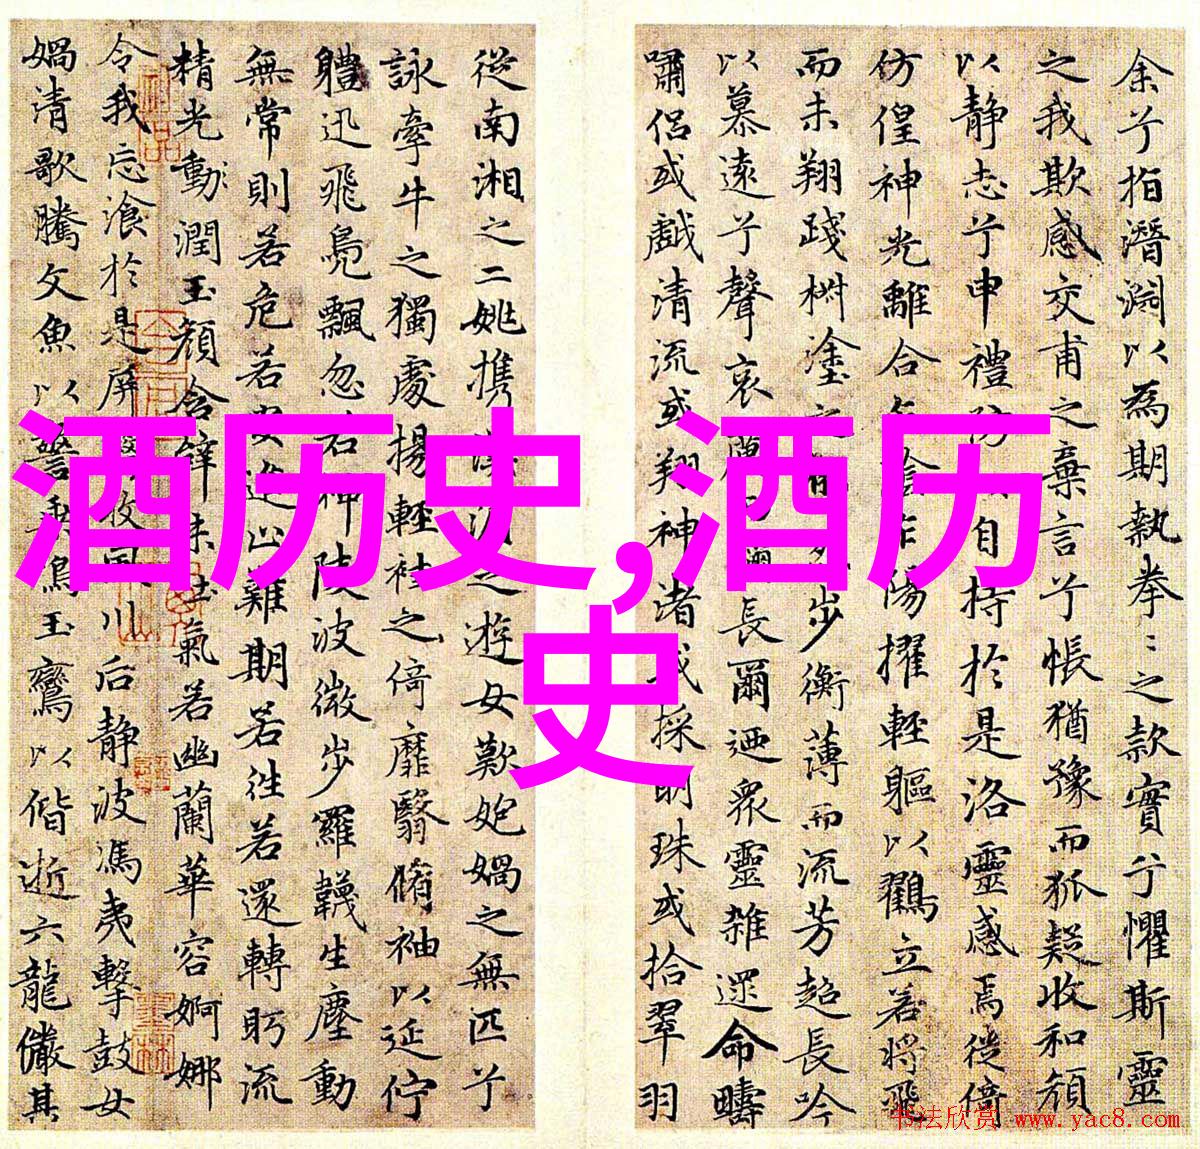 酒历史,酒历
史
余兮指潛淵以為期執拳〻之款實兮懼斯靈
之我欺感交甫之棄言兮悵猶豫而狐疑收和顏
以静志兮申禮防自持於是洛靈感焉徙倚
仿偟神光離合乍陰乍陽擢輕軀以鶴立若將飛
而未翔踐椒塗之步衡薄而流芳超長吟
以慕遠兮聲哀厲彌長爾迺衆靈雜遝命疇
嘯侶或戲清流或翔神渚或採明珠或拾翠羽
從南湘之二姚攜漢濱之遊女歎匏媧之無匹兮
詠牽牛之獨處揚輕袿之倚靡翳脩袖以延佇
體迅飛鳧飄忽若神陵波微步羅韈生塵動
無常則若危若安進止難期若往若還轉眄流
精光動潤玉顏含辭未吐氣若幽蘭華容婀娜
令我忘飡於是屏收風川后静波馮夷擊鼓女
媧清歌騰文魚以警乘鳴玉鸞以偕逝六龍儼其
书法欣赏 www.yac8.com